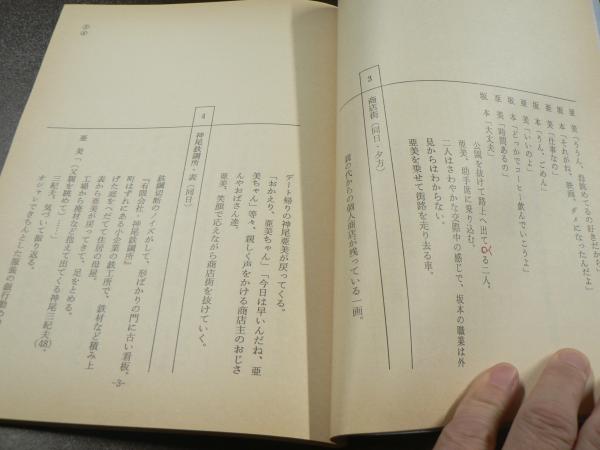 亜　美「ううん、鳥眺めてるの好きだから」
坂　本「それがね、映画、ダメになったんだよ」
亜　美「仕事なの」
坂　本「うん、ごめん」
亜　美「いいのよ」
坂　本「どっかでコーヒー飲んでいこうよ」
亜　美「時間あるの」
坂　本「大丈夫」
公園を抜けて路上へ出てく る二人。
亜美、助手席に乗り込む。
二人はさわやかな交際中の感じで、坂本の職業は外
見からはわからない。
亜美を乗せて街路を走り去る車。
3　商店街（同日・夕方）
親の代からの個人商店が残っている一画。
デート帰りの神尾亜美が戻ってくる。
「おかえり、亜美ちゃん」「今日は早いんだね、亜
美ちゃん」等々、親しく声をかける商店主のおじさ
んやおばさん達。
亜美、笑顔で応えながら商店街を抜けていく。
4　神尾鉄鋼所・表（同日）
鉄鋼切断のノイズがして、形ばかりの門に古い看板。
『有限会社・神尾鉄鋼所』
町はずれにある小企業の鉄工所で、鉄材など積み上
げた庭をへだてて住居の母屋。
表から亜美が戻ってきて、足をとめる。
工場から廃材など抱えて出てくる神尾三紀夫(48)。
亜　美「（父親を眺めて）……」
三紀夫、気づいて振り返る。
オシャレできちんとした服装の銀行勤め
-3-